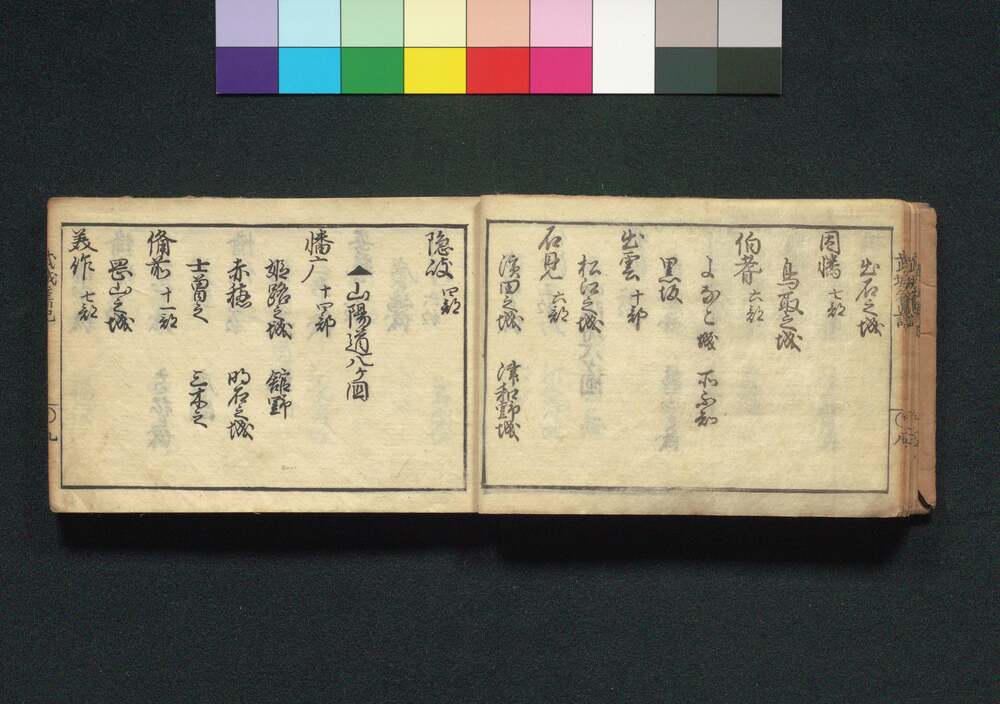 出石之城
因幡 七郡
鳥取之城
伯耆 六郡
よなこ城
黒坂
出雲 十郡
松江之城
石見 六郡
濱田之城 津和野城
隠岐 四郡
▲山陽道八ケ國
幡广 十四郡
姫路之城 舘野
赤穂 明石之城
三木之
備前 十一郡
岡山之城
美作 七郡